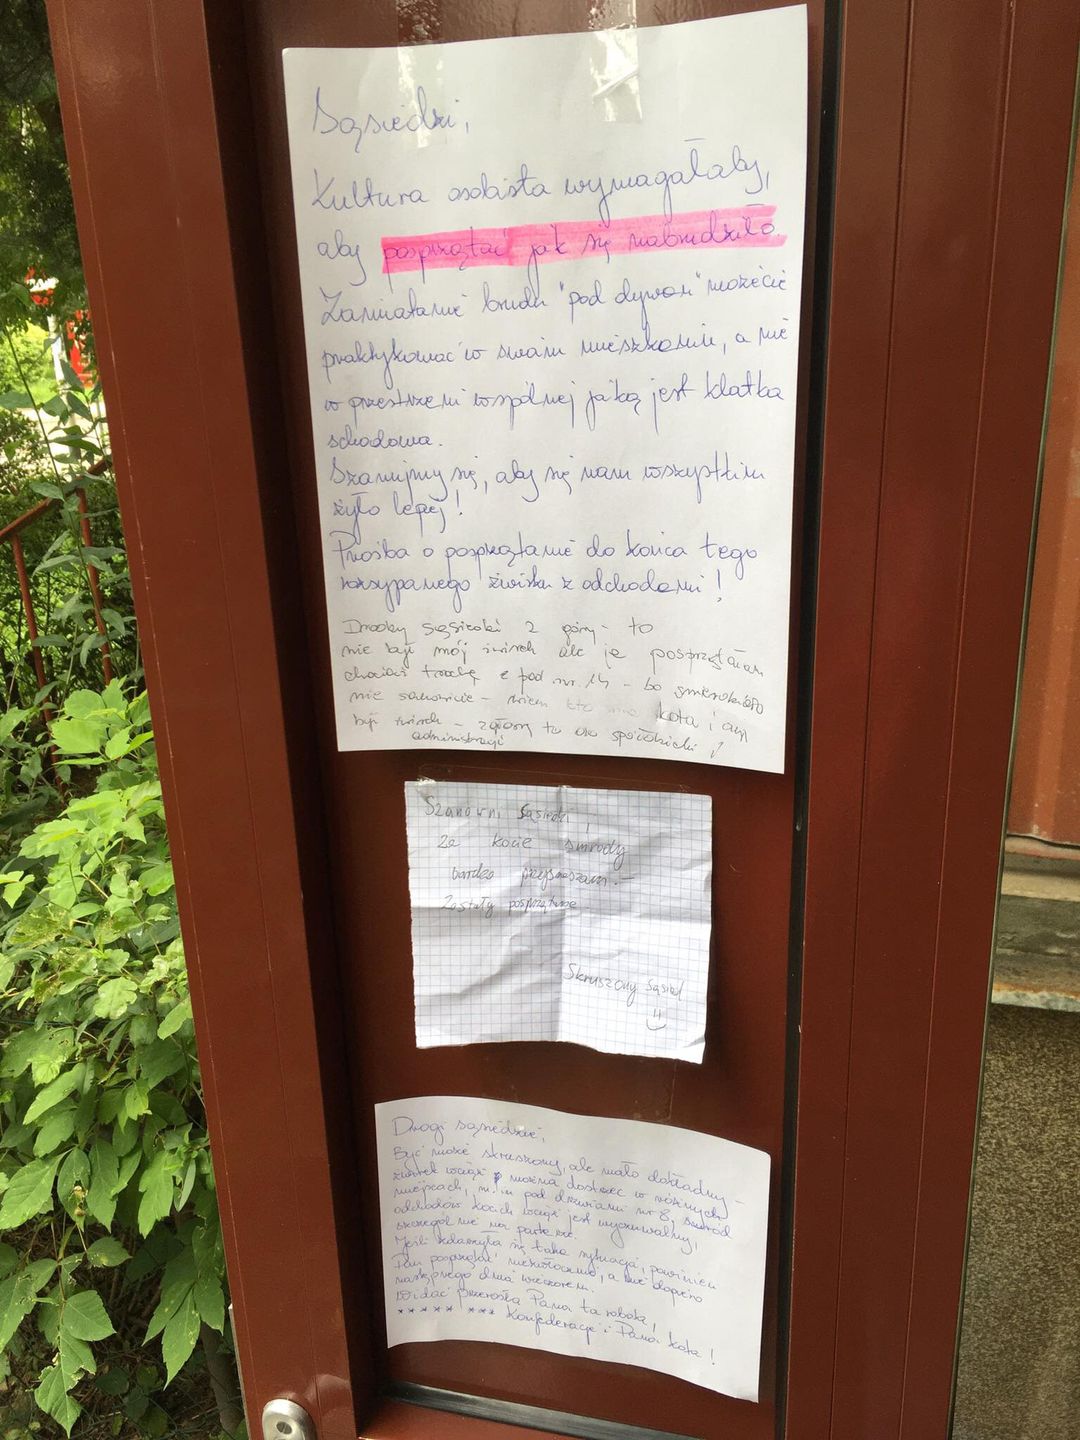 Sąsiedzi,
Kultura osobista wymagałaby,
aby posprzątać jak się nabrudziło.
Zamiatanie brudu "pod dywan" możecie
praktykować w swoim mieszkaniu, a nie
w przestrzeni wspólnej jaką jest klatka
schodowa.
Szanujmy się, aby się nam wszystkim
żyło lepiej!
Prośba o posprzątanie do końca tego
rozsypanego żwirku z odchodami!
Drodzy sąsiedzi z góry - to
nie był mój żwirek ale ja posprzątałam
chociaż trochę z pod nr. 14 - bo
nie - wiem kto ma kota i czyj
był żwirek - zgłoszę to do spółdzielni!
administracji
Szanowni Sąsiedzi!
Za kocie smrody
bardzo przepraszam.-
Zostały posprzątane
Skruszony Sąsiad
Drogi sąsiedzie,
Być może skruszony, ale mało dokładny -
żwirek wciąż można dostrzec w różnych
miejscach, m.in pod drzwiami nr 8, smród
odchodów kocich wciąż jest wyczuwalny,
szczególnie na parterze.
Jeśli zdarzyła się taka sytuacja, powinien
Pan posprzątać niezwłocznie, a nie dopiero
następnego dnia wieczorem.
Widać przerosła Pana ta robota,
***** *** Konfederację i Pana kota!